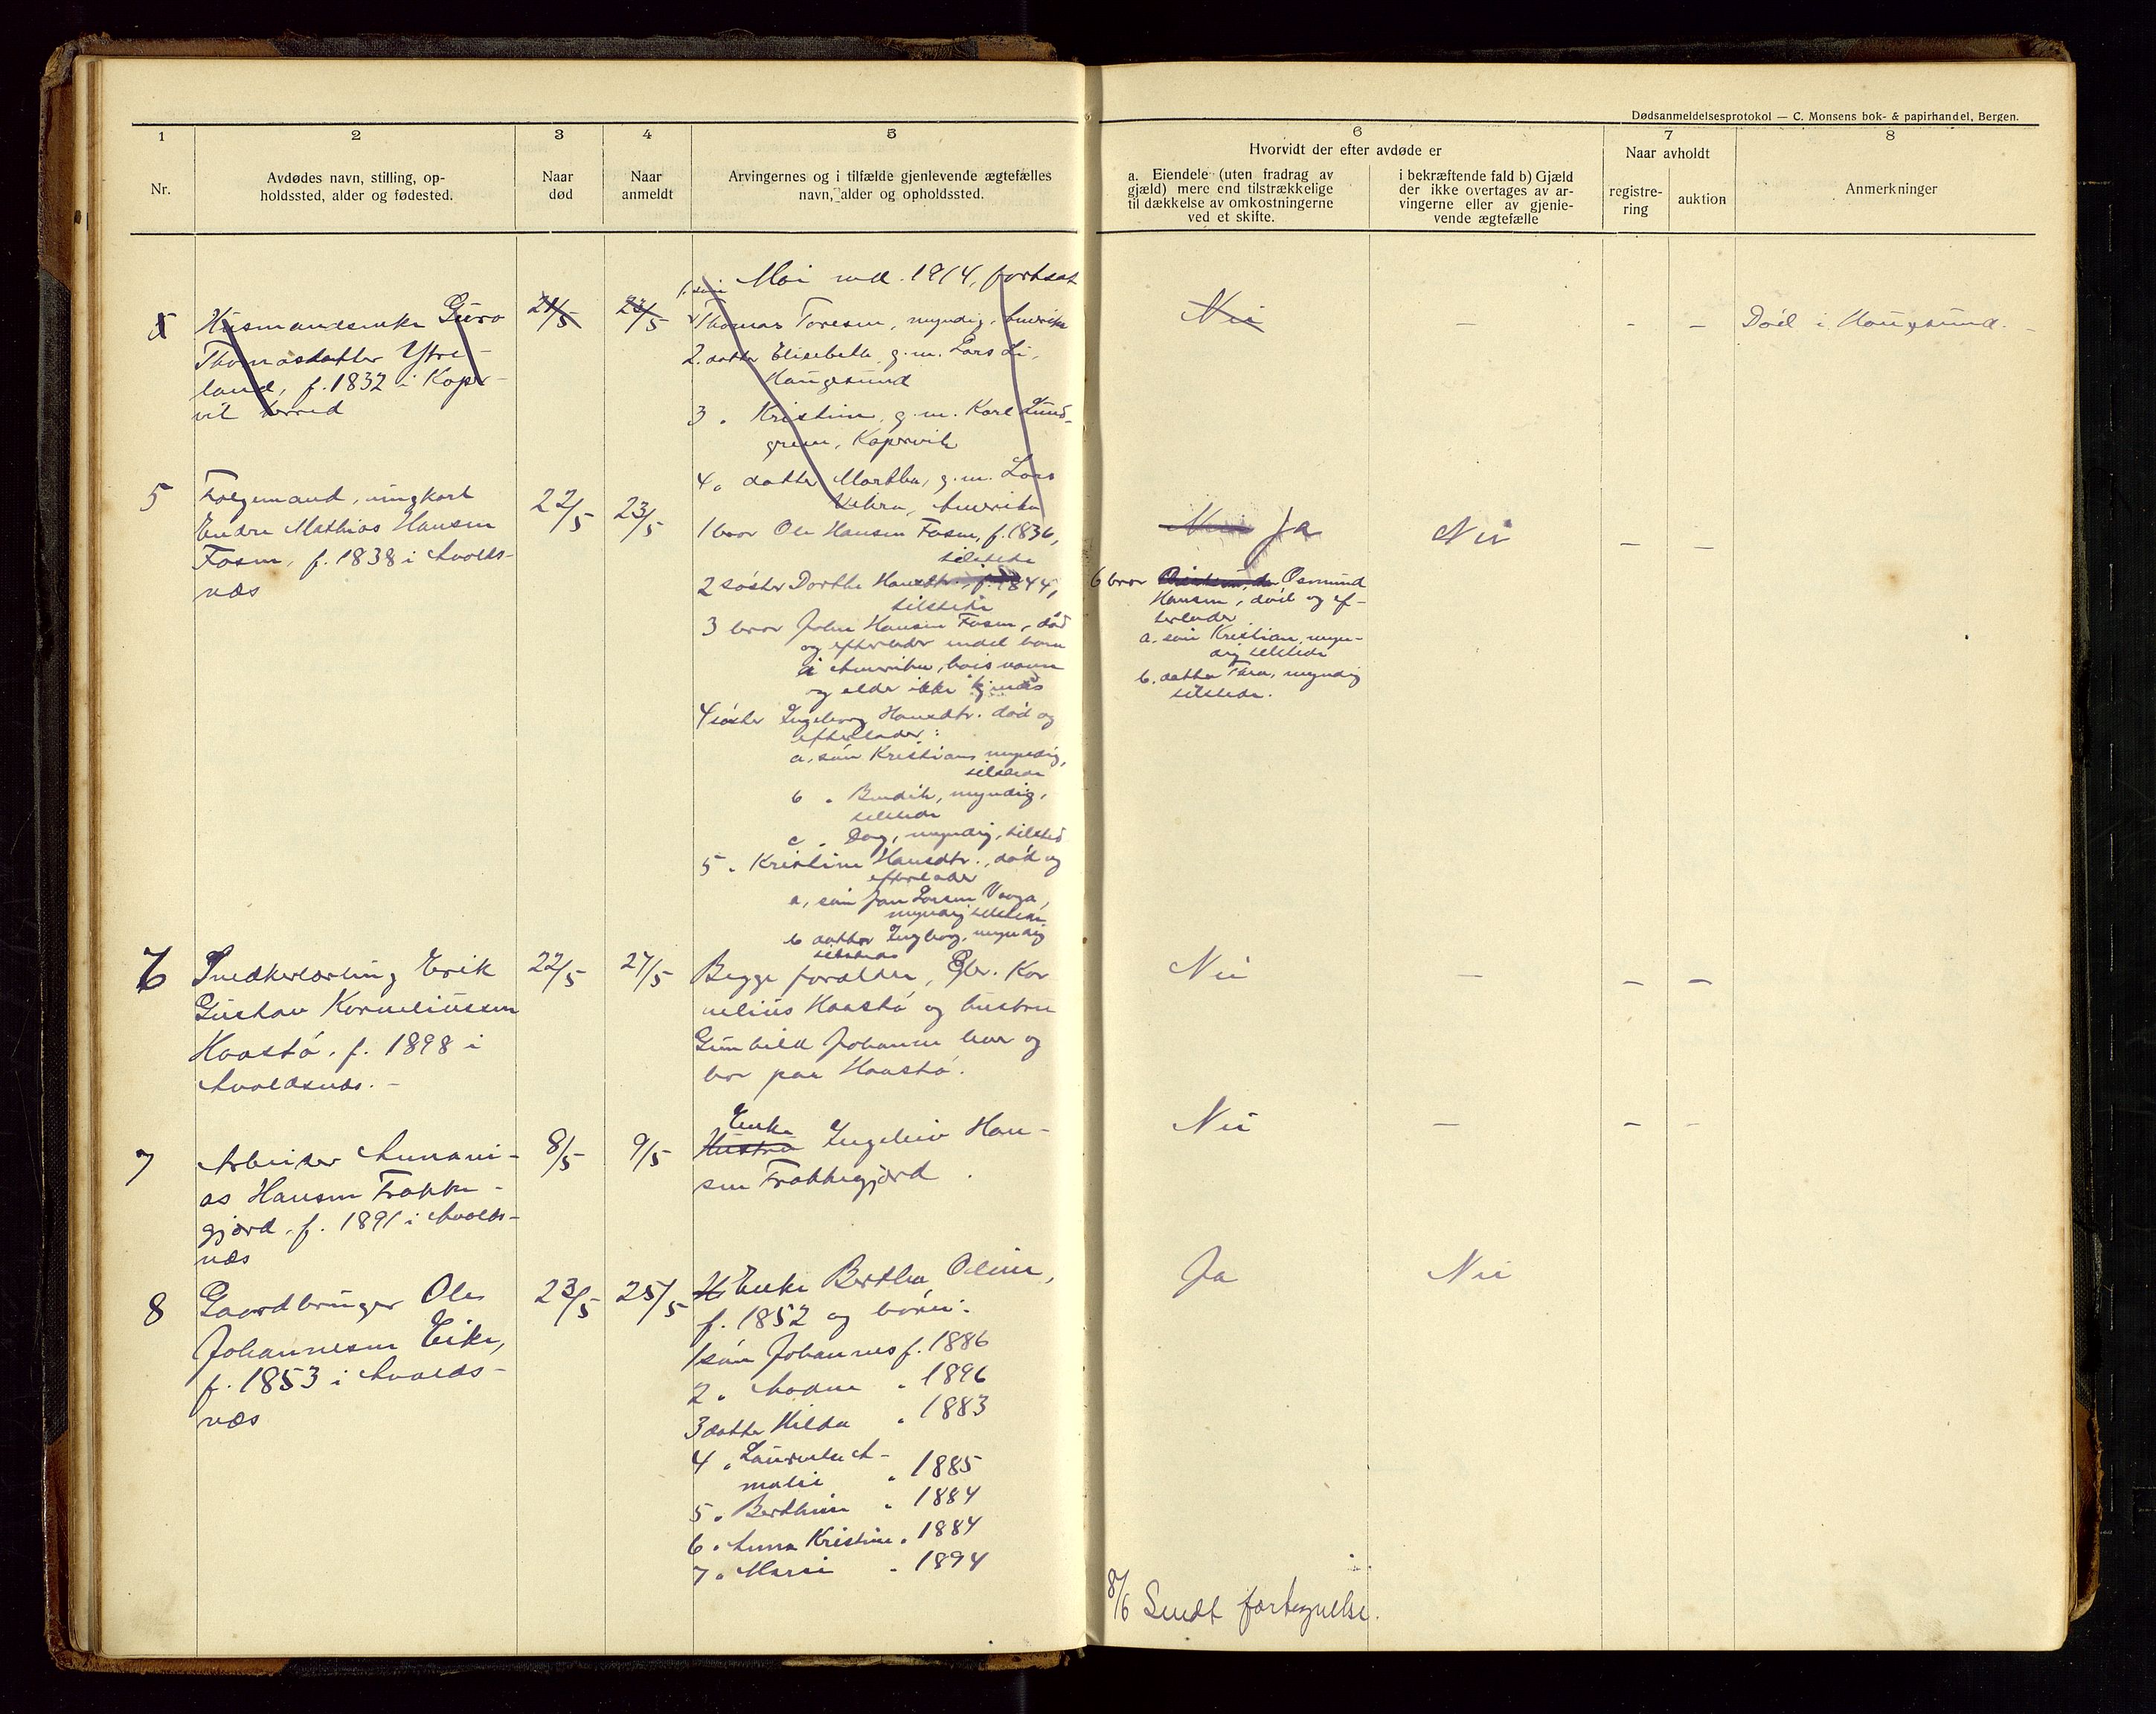 Dødsanmeldelsesprotokol — C. Monsens bok- & papirhandel, Bergen.
1
2
3
4
5
6
7
8
Nr.
Avdødes navn, stilling, op-
holdssted, alder og fødested.
Naar
død
Naar
anmeldt
Arvingernes og i tilfælde gjenlevende ægtefælles
navn, alder og opholdssted.
Hvorvidt der efter avdøde er
a. Eiendele (uten fradrag av
gjæld) mere end tilstrækkelige
til dækkelse av omkostningerne
ved et skifte.
i bekræftende fald b) Gjæld
der ikke overtages av ar-
vingerne eller av gjenle-
vende ægtefælle
Naar avholdt
registre-
ring
auktion
Anmerkninger
Mai md. 1914, fortsat
5
Husmandsenke Guro
Thomasdatter Ytre-
land, f. 1832 i Koper-
vik herred
21/5
23/5
1. søn
Thomas Toresen, myndig, Amerika
2. datter Elisebeth, g.m. Lars Li,
Haugesund
3 " Kristine, g.m. Karl Lund-
green, Kopervik
4 " datter Marthe, g.m. Lars
Amerika
Nei
—
-
-
Død i Haugesund. -
5
Følgemand, ungkarl
Endre Mathias Hansen
Fosen, f. 1838 i Avalds-
næs
22/5
23/5
1 bror Ole Hansen Fosen, f. 1836,
tilstede
2 søster Dorthe Hansdtr., f. 1844,
tilstede
3 bror John Hansen Fosen, død
og efterlader endel børn
i Amerika, hvis navn
og alder ikke kjendes
4 søster Ingeborg Hansdtr. død og
efterlader:
a. søn Kristian myndig,
tilstede
b " Bendik, myndig,
tilstede
c " Dag, myndig, tilsted
5 " Kristine Hansdtr., død og
efterlader
a, søn Jan Larsen Vaaga,
myndig tilstede
b datter Ingborg, myndig
tilstede
Nei Ja
Nei
-
-
6 bror Osmund
Hansen, død og ef-
terlader
a. søn Kristian, myn-
dig tilstede
b. datter Thea, myndig
tilstede.
6
Snedkerlærling Erik
Gustav Korneliussen
Haastø, f. 1898 i
Avaldsnæs. -
22/5
27/5
Begge forældre, Gbr. Kor
nelius Haastø og hustru
Gunhild Johanne lever og
bor paa Haastø.
Nei
—
-
-
7
Arbeider Annani-
as Hansen Frakke-
gjerd, f. 1891 i Avalds-
næs
8/5
9/5
Enke
Hustru Ingeleiv Han-
sen Frakkegjerd.
Nei
—
-
-
8
Gaardbruger Ole
Johannesen Eike,
f. 1853 i Avalds-
næs
23/5
25/5
H Enke Bertha Oline,
f. 1852 og børn:
1 søn Johannes f. 1886
2 " Aadne " 1896
3 datter Hilda " 1883
4 " Laurentse A-
malie " 1885
5 " Berthine " 1884
6 " Anna Kristine " 1884
7 " Marie " 1894
Ja
Nei
8/6 Sendt fortegnelse.